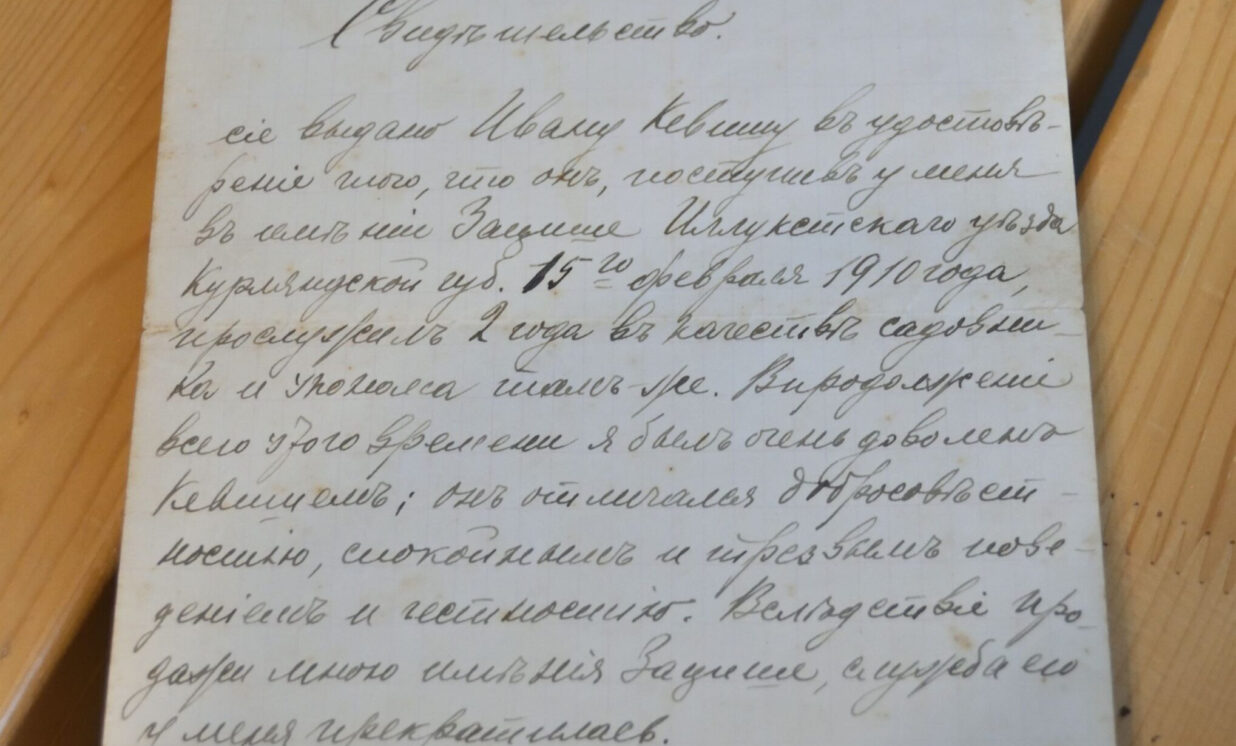 Свидѣтельство.
сіе выдано Ивану Кевишу въ удостовѣ-
реніе того, что онъ, поступивъ у меня
въ имѣніи Зацише Иллукстскаго уѣзда
Курляндской губ. 15го февраля 1910 года,
прослужилъ 2 года въ качествѣ садовни-
ка и эконома тамъ-же. Впродолженіи
всего этого времени я былъ очень доволенъ
Кевишемъ; онъ отличался добросовѣст-
ностію, спокойнымъ и трезвымъ пове-
деніемъ и честностію. Вслѣдствіе про-
дажи мною имѣнія Зацише, служба его
у меня прекратилась.